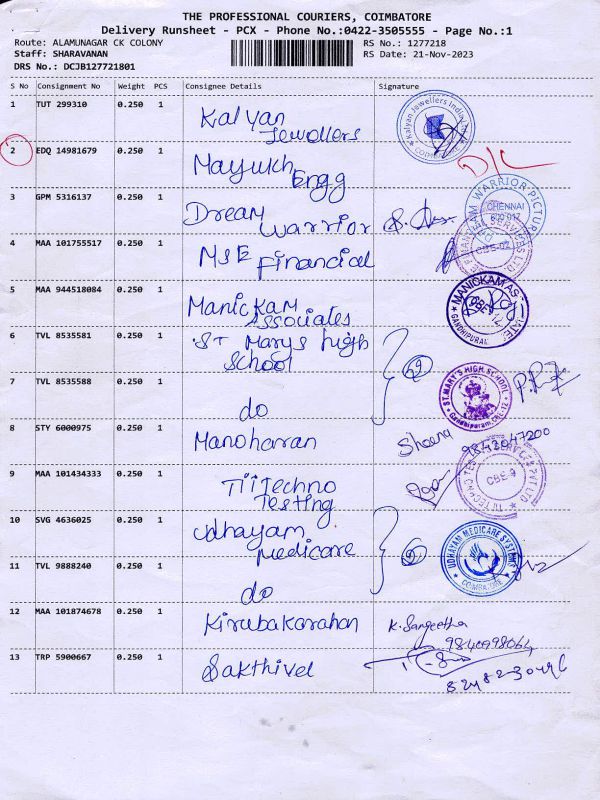 THE PROFESSIONAL COURIERS, COIMBATORE
Delivery Runsheet - PCX - Phone No.:0422-3505555 - Page No.:1
Route: ALAMUNAGAR CK COLONY
RS No.: 1277218
Staff: SHARAVANAN
RS Date: 21-Nov-2023
DRS No.: DCJB127721801
S No Consignment No Weight PCS Consignee Details Signature
1 TUT 299310 0.250 1 Kalyan Jewellers
Kalyan Jewellers India
COIMBATORE
2 EDQ 14981679 0.250 1 Mayukh Engg
D/L
3 GPM 5316137 0.250 1 Dream Warrior
WARRIOR PICTUR
CHENNAI
600 017
4 MAA 101755517 0.250 1 MSE Financial
FINANCIAL SERVICES LTD
CBE-02
5 MAA 944518084 0.250 1 Manickam Associates
MANICKAM AS
GANDHIPURAM
6 TVL 8535581 0.250 1 ST Marys high School
7 TVL 8535588 0.250 1 do
ST.MARY'S HIGH SCHOOL
Gandhipuram, CBE-12
8 STY 6000975 0.250 1 Manoharan
Sheena 9843047200
9 MAA 101434333 0.250 1 TIITechno Testing
TII TECHNO TES
SERVICES PVT LTD
10 SVG 4636025 0.250 1 Udhayam Medicare
11 TVL 9888240 0.250 1 do
UDHAYAM MEDICARE SYSTEMS
COIMBATORE
12 MAA 101874678 0.250 1 Kirubakarahan
K. Sangeetha
13 TRP 5900667 0.250 1 Sakthivel